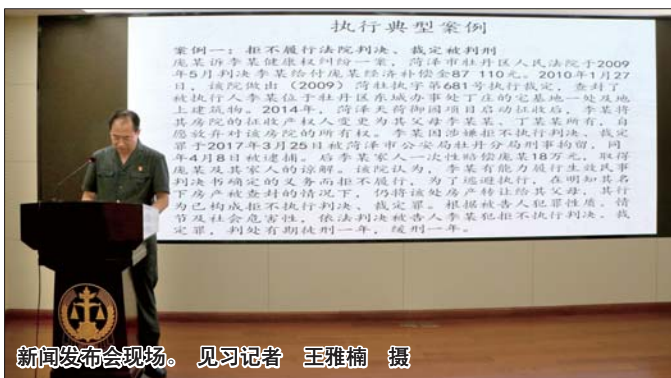 执行典型案例
案例一：拒不履行法院判决、裁定被判刑
庞某诉李某健康权纠纷一案，菏泽市牡丹区人民法院于2009
年5月判决李某给付庞某经济补偿金87 110元。2010年1月27
日，该院做出（2009）菏牡执字第681号执行裁定，查封了
被执行人李某位于牡丹区东城办事处丁庄的宅基地一处及地
上建筑物。2014年，菏泽天菏御园项目启动征收后，李某将
其房院的征收产权人变更为其父母李某某、丁某某所有，自
愿放弃对该房院的所有权。李某因涉嫌拒不执行判决、裁定
罪于2017年3月25日被菏泽市公安局牡丹分局刑事拘留，同
年4月8日被逮捕。后李某家人一次性赔偿庞某18万元，取得
庞某及其家人的谅解。该院认为，李某有能力履行生效民事
判决书确定的义务而拒不履行，为了逃避执行，在明知其名
下房产被查封的情况下，仍将该处房产转让给其父母，其行
为已构成拒不执行判决、裁定罪。根据被告人犯罪性质、情
节及社会危害性，依法判决被告人李某犯拒不执行判决、裁
定罪，判处有期徒刑一年，缓刑一年。
新闻发布会现场。 见习记者 王雅楠 摄